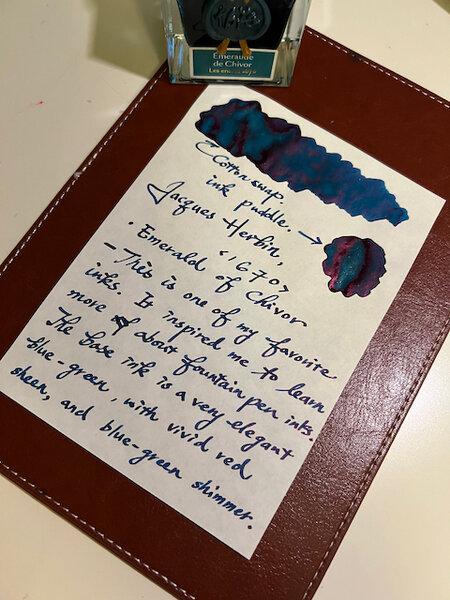 Emeraude
de Chivor
Cotton swap.
ink puddle. →
Jacques Herbin,
<1670>
· Emerald of Chivor
- This is one of my favorite
inks. It inspired me to learn
more about fountain pen inks.
The base ink is a very elegant
blue-green, with vivid red
sheen, and blue-green shimmer.